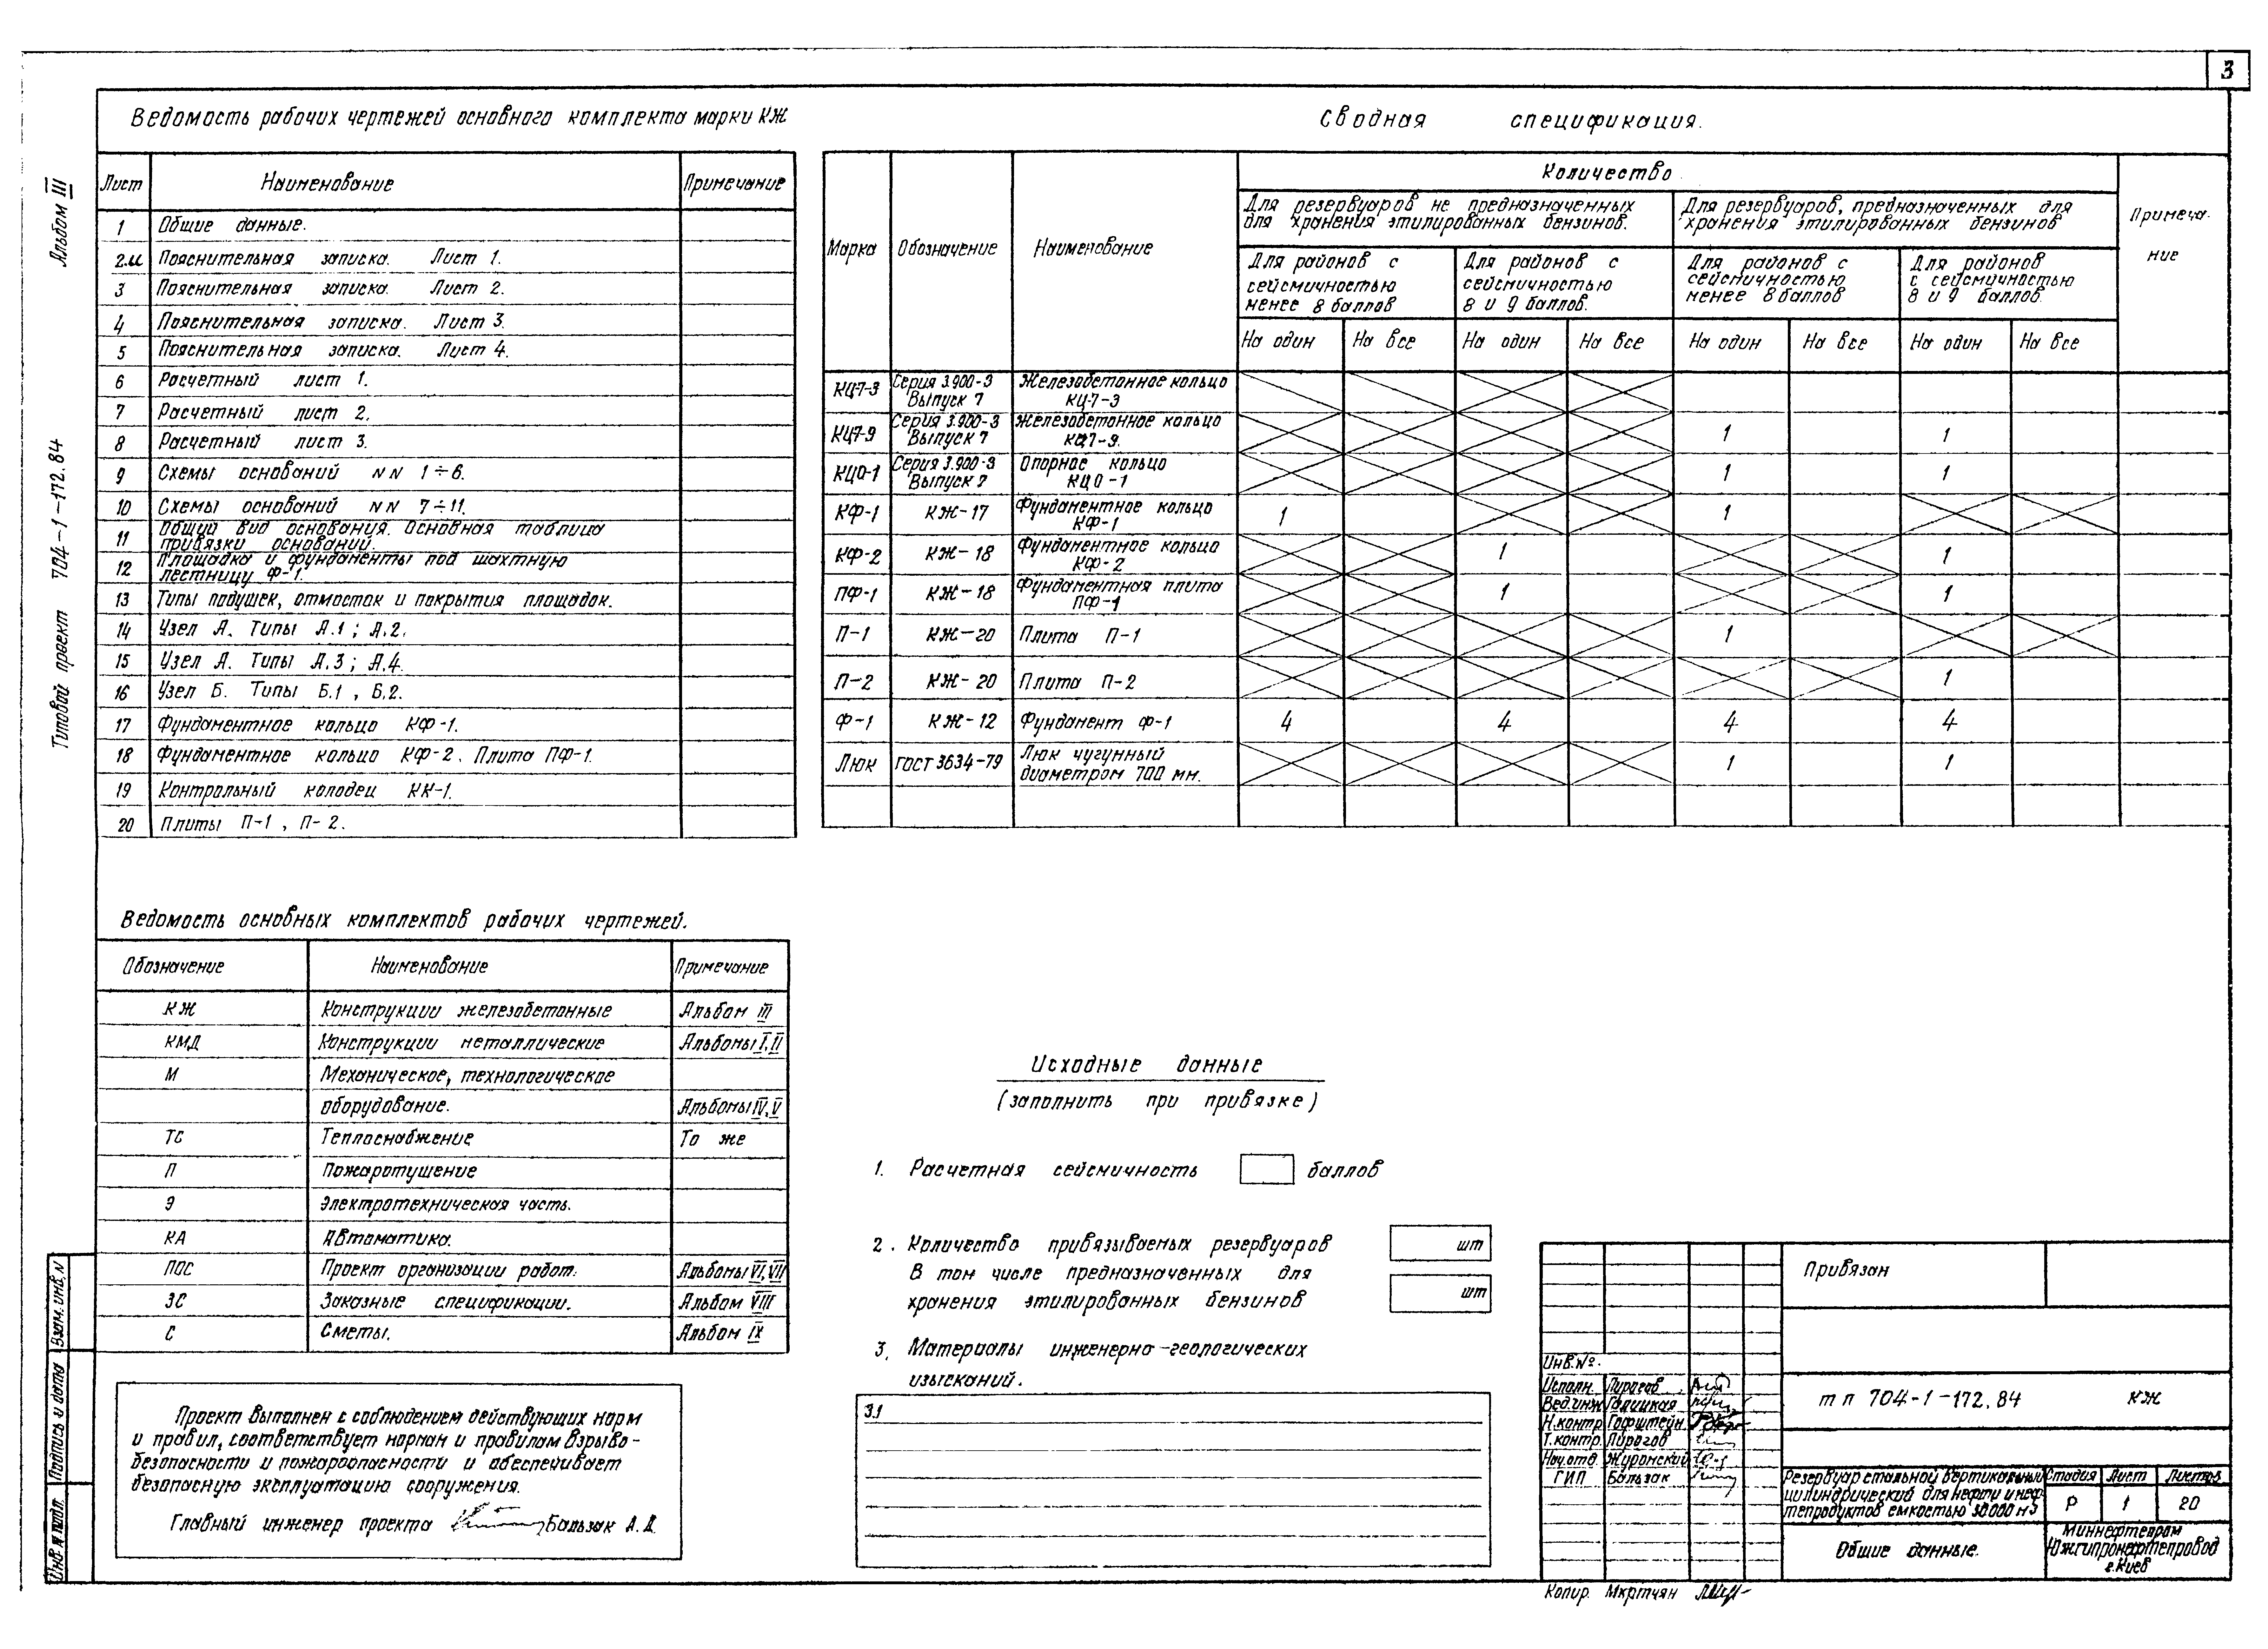 3
Альбом III
Типовой проект 704-1-172.84
Ведомость рабочих чертежей основного комплекта марки КЖ
Лист Наименование Примечание
1 Общие данные.
2.и Пояснительная записка. Лист 1.
3 Пояснительная записка. Лист 2.
4 Пояснительная записка. Лист 3.
5 Пояснительная записка. Лист 4.
6 Расчетный лист 1.
7 Расчетный лист 2.
8 Расчетный лист 3.
9 Схемы оснований NN 1÷6.
10 Схемы оснований NN 7÷11.
11 Общий вид основания. Основная таблица
привязки оснований.
12 Площадка и фундаменты под шахтную
лестницу Ф-1.
13 Типы подушек, отмосток и покрытия площадок.
14 Узел А. Типы А.1; А.2.
15 Узел А. Типы А.3; А.4.
16 Узел Б. Типы Б.1, Б.2.
17 Фундаментное кольцо КФ-1.
18 Фундаментное кольцо КФ-2. Плита ПФ-1.
19 Контрольный колодец КК-1.
20 Плиты П-1, П-2.
Сводная спецификация.
Марка Обозначение Наименование Количество Примеча-
ние
Для резервуаров не предназначенных
для хранения этилированных бензинов.
Для резервуаров, предназначенных для
хранения этилированных бензинов
Для районов с
сейсмичностью
менее 8 баллов
Для районов с
сейсмичностью
8 и 9 баллов.
Для районов с
сейсмичностью
менее 8 баллов
Для районов
с сейсмичностью
8 и 9 баллов.
На один На все На один На все На один На все На один На все
КЦ7-3 Серия 3.900-3 Железобетонное кольцо
Выпуск 7 КЦ-7-3
КЦ7-9 Серия 3.900-3 Железобетонное кольцо 1 1
Выпуск 7 КЦ7-9.
КЦО-1 Серия 3.900-3 Опорное кольцо 1 1
Выпуск 7 КЦО-1
КФ-1 КЖ-17 Фундаментное кольцо 1 1
КФ-1
КФ-2 КЖ-18 Фундаментное кольцо 1 1
КФ-2
ПФ-1 КЖ-18 Фундаментная плита 1 1
ПФ-1
П-1 КЖ-20 Плита П-1 1
П-2 КЖ-20 Плита П-2 1
Ф-1 КЖ-12 Фундамент Ф-1 4 4 4 4
Люк ГОСТ 3634-79 Люк чугунный 1 1
диаметром 700 мм.
Ведомость основных комплектов рабочих чертежей.
Обозначение Наименование Примечание
КЖ Конструкции железобетонные Альбом III
КМД Конструкции металлические Альбомы I, II
М Механическое, технологическое
оборудование. Альбомы IV, V
ТС Теплоснабжение То же
П Пожаротушение
Э Электротехническая часть.
КА Автоматика.
ПОС Проект организации работ. Альбомы VI, VII
ЗС Заказные спецификации. Альбом VIII
С Сметы. Альбом IX
Проект выполнен с соблюдением действующих норм
и правил, соответствует нормам и правилам взрыво-
безопасности и пожароопасности и обеспечивает
безопасную эксплуатацию сооружения.
Главный инженер проекта Бальзак А.Д.
Исходные данные
(заполнить при привязке)
1. Расчетная сейсмичность баллов
2. Количество привязываемых резервуаров шт
В том числе предназначенных для
хранения этилированных бензинов шт
3. Материалы инженерно-геологических
изысканий.
3.1
Взам. инв. N
Подпись и дата
Инв. N подл.
Привязан
Инв. №.
Исполн. Пирогов
Вед. инж Галицкая
Н. контр Гофштейн
Т. контр. Пирогов
Нач. отд. Журомский
ГИП Бальзак
тп 704-1-172.84 КЖ
Резервуар стальной вертикальный
цилиндрический для нефти и неф-
тепродуктов емкостью 30000 м3
Стадия Лист Листов
Р 1 20
Общие данные.
Миннефтепром
Южгипронефтепровод
г. Киев
Копир. Мкртчян